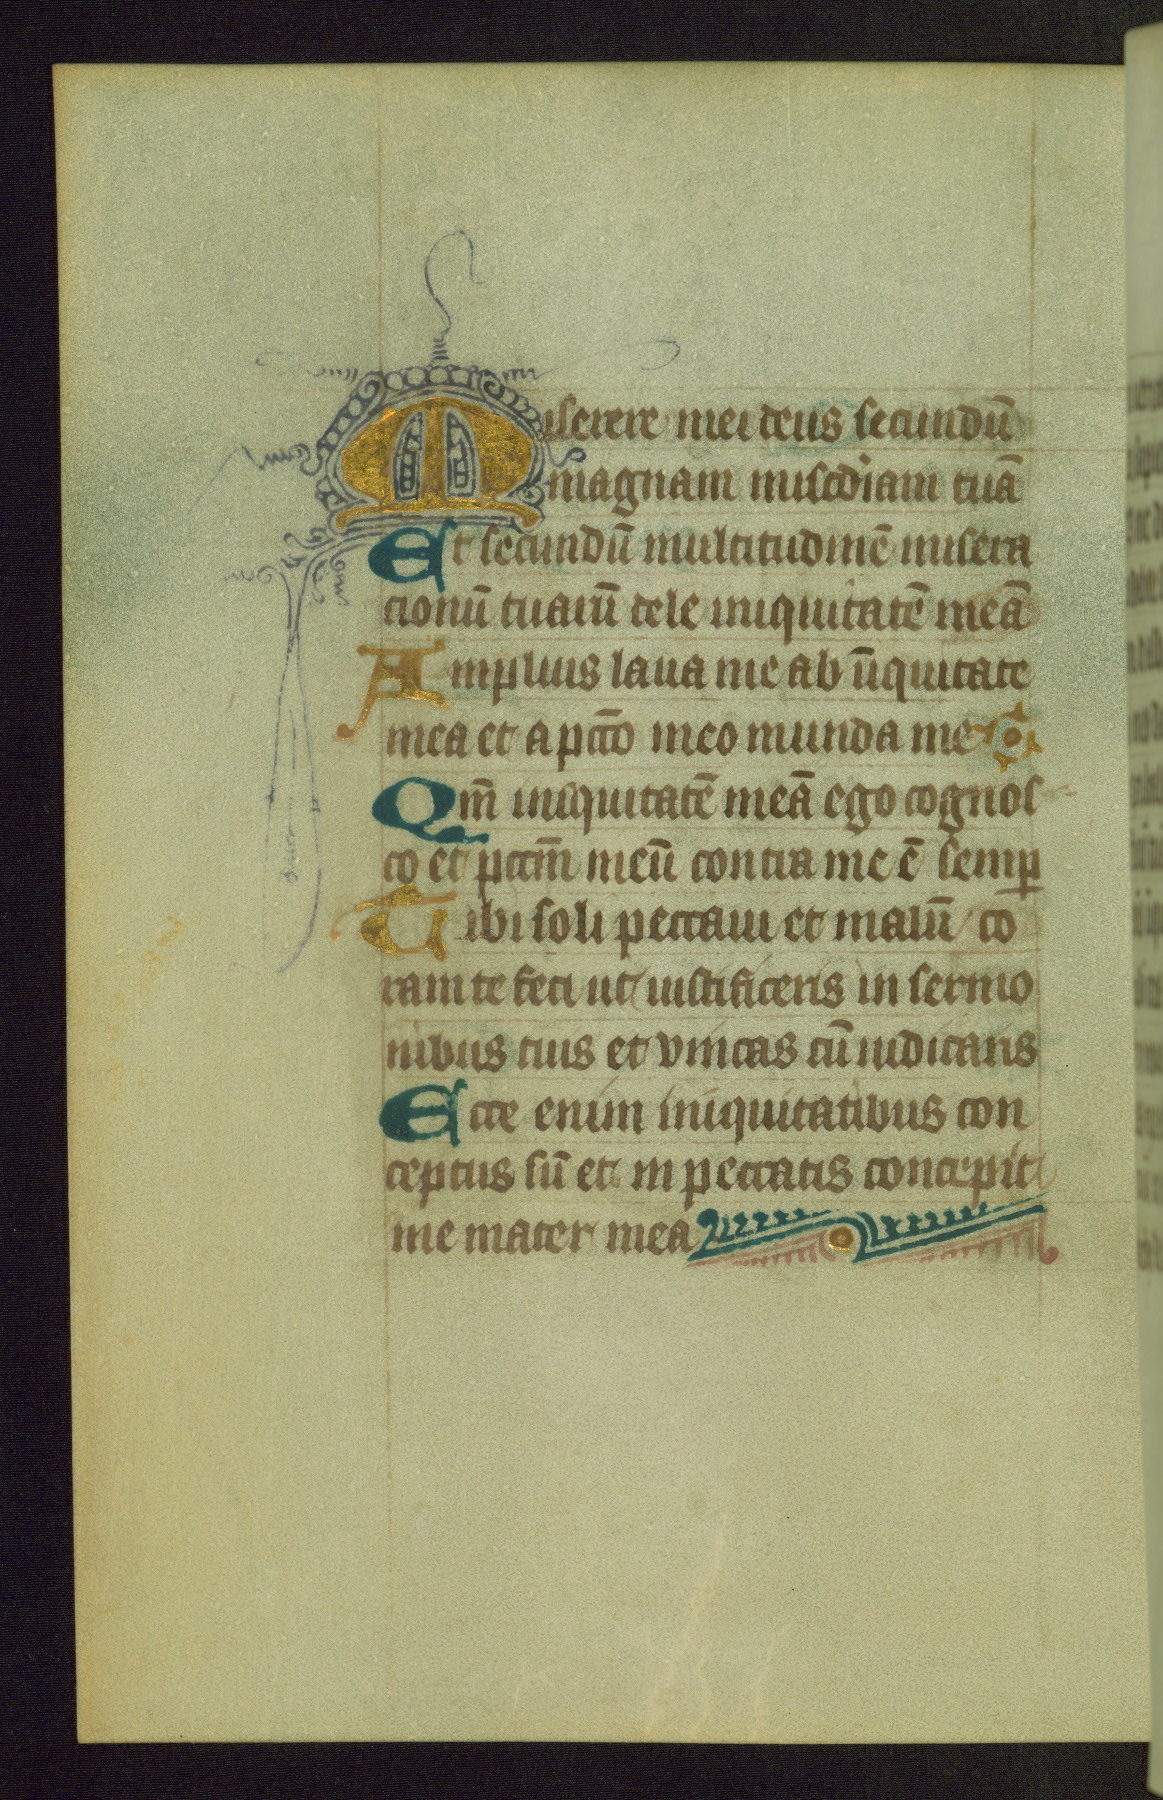 Miserere mei deus secundū
magnam misc̄diam tuā
Et secundū multitudinē misera
cionū tuarū dele iniquitatē meā
Amplius laua me ab iniquitate
mea et a pcc̄o meo munda me
Qm̄ iniquitatē meā ego cognos
co et pccm̄ meū contra me ē semꝑ
Tibi soli peccaui et malū co
ram te feci ut iustificeris in sermo
nibus tuis et vincas cū iudicaris
Ecce enim iniquitatibus con
ceptus sū et in peccatis concepit
me mater mea